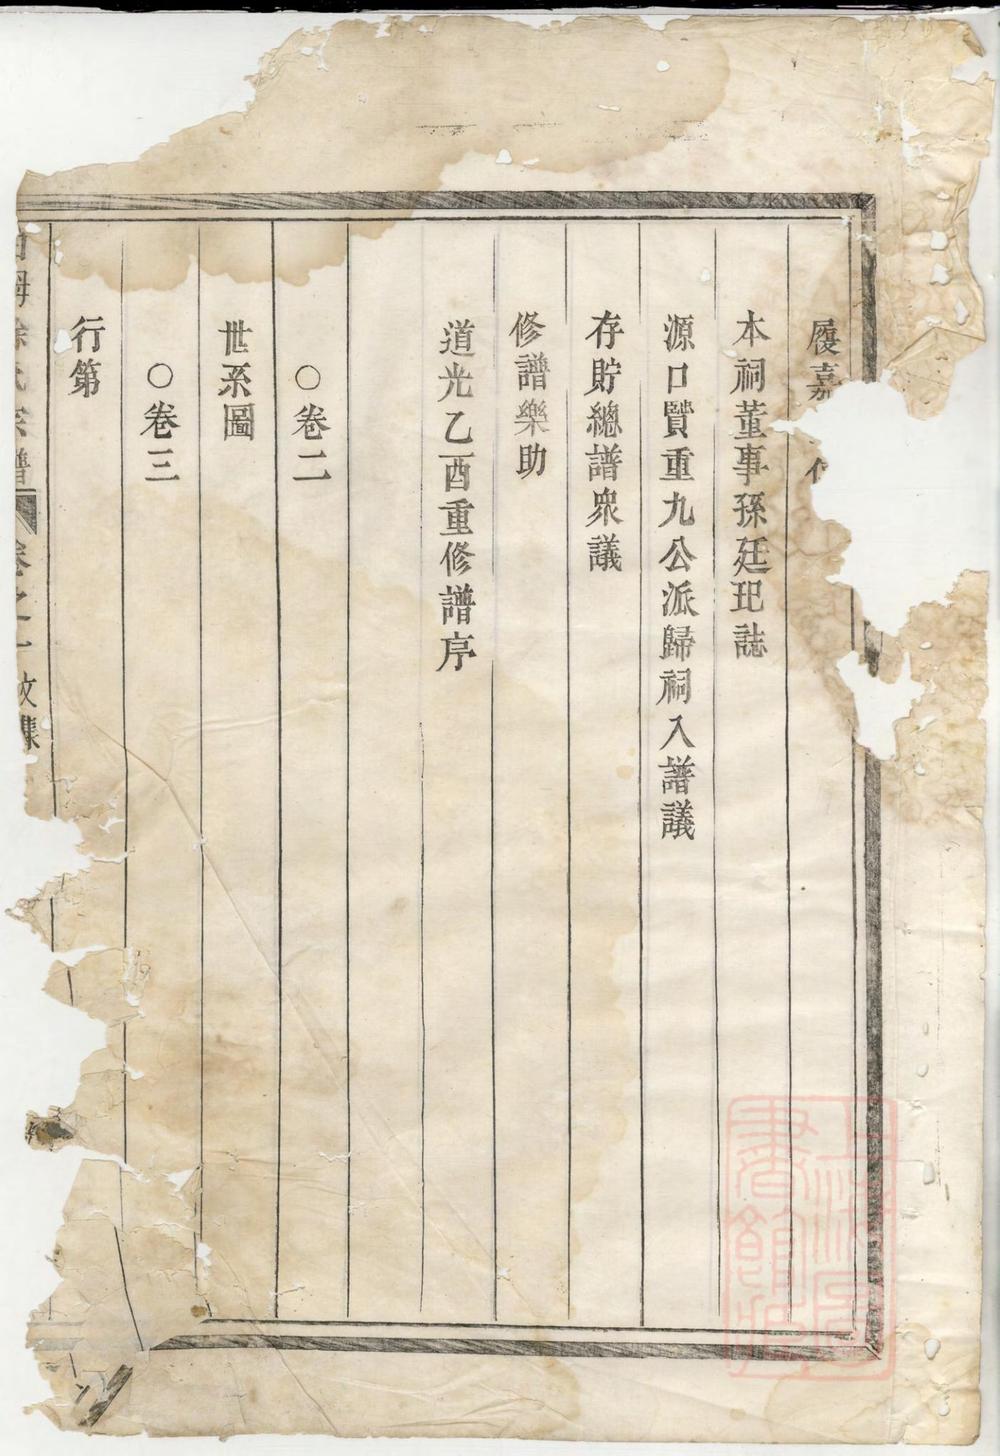 履嘉
本祠董事孫廷玘誌
源口贒重九公派歸祠入譜議
存貯總譜衆議
修譜樂助
道光乙酉重修譜序
○卷二
世系圖
○卷三
行第
徐氏宗譜 卷之一
上海圖書館藏